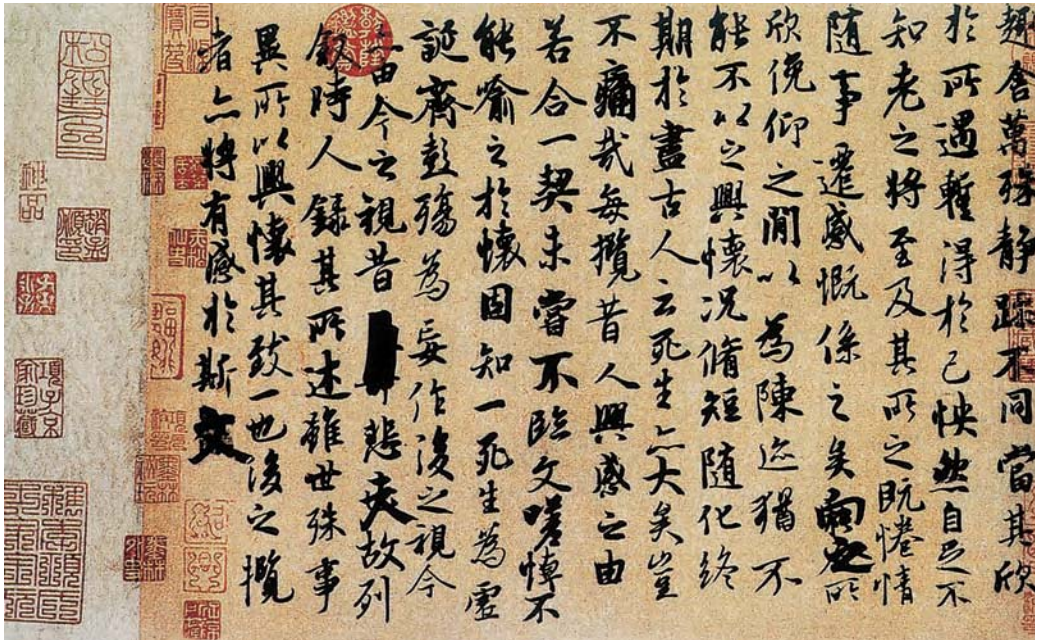 趣舍萬殊静躁不同當其欣
於所遇暫得於己怏然自足不
知老之將至及其所之既惓情
随事遷感慨係之矣向之所
欣俛仰之間以為陳迹猶不
能不以之興懷況脩短随化終
期於盡古人云死生亦大矣豈
不痛哉每攬昔人興感之由
若合一契未嘗不臨文嗟悼不
能喻之於懷固知一死生為虛
誕齊彭殤為妄作後之視今
亦由今之視昔悲夫故列
叙時人録其所述雖世殊事
異所以興懷其致一也後之攬
者亦將有感於斯文
神品
項子京家珍藏